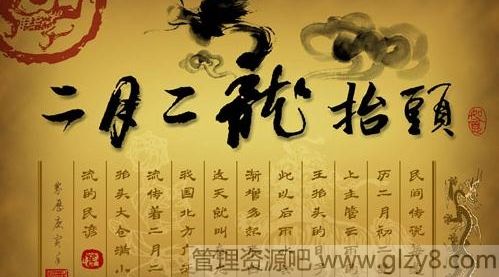 二月二龍抬頭
民间传说
历二月初二
上主管云雨
王抬头的日
此以后雨
渐增多起
这天就叫
我国北方广
流传着二月二
抬头大仓满小
流的民谚
管理资源吧 www.glzy8.com